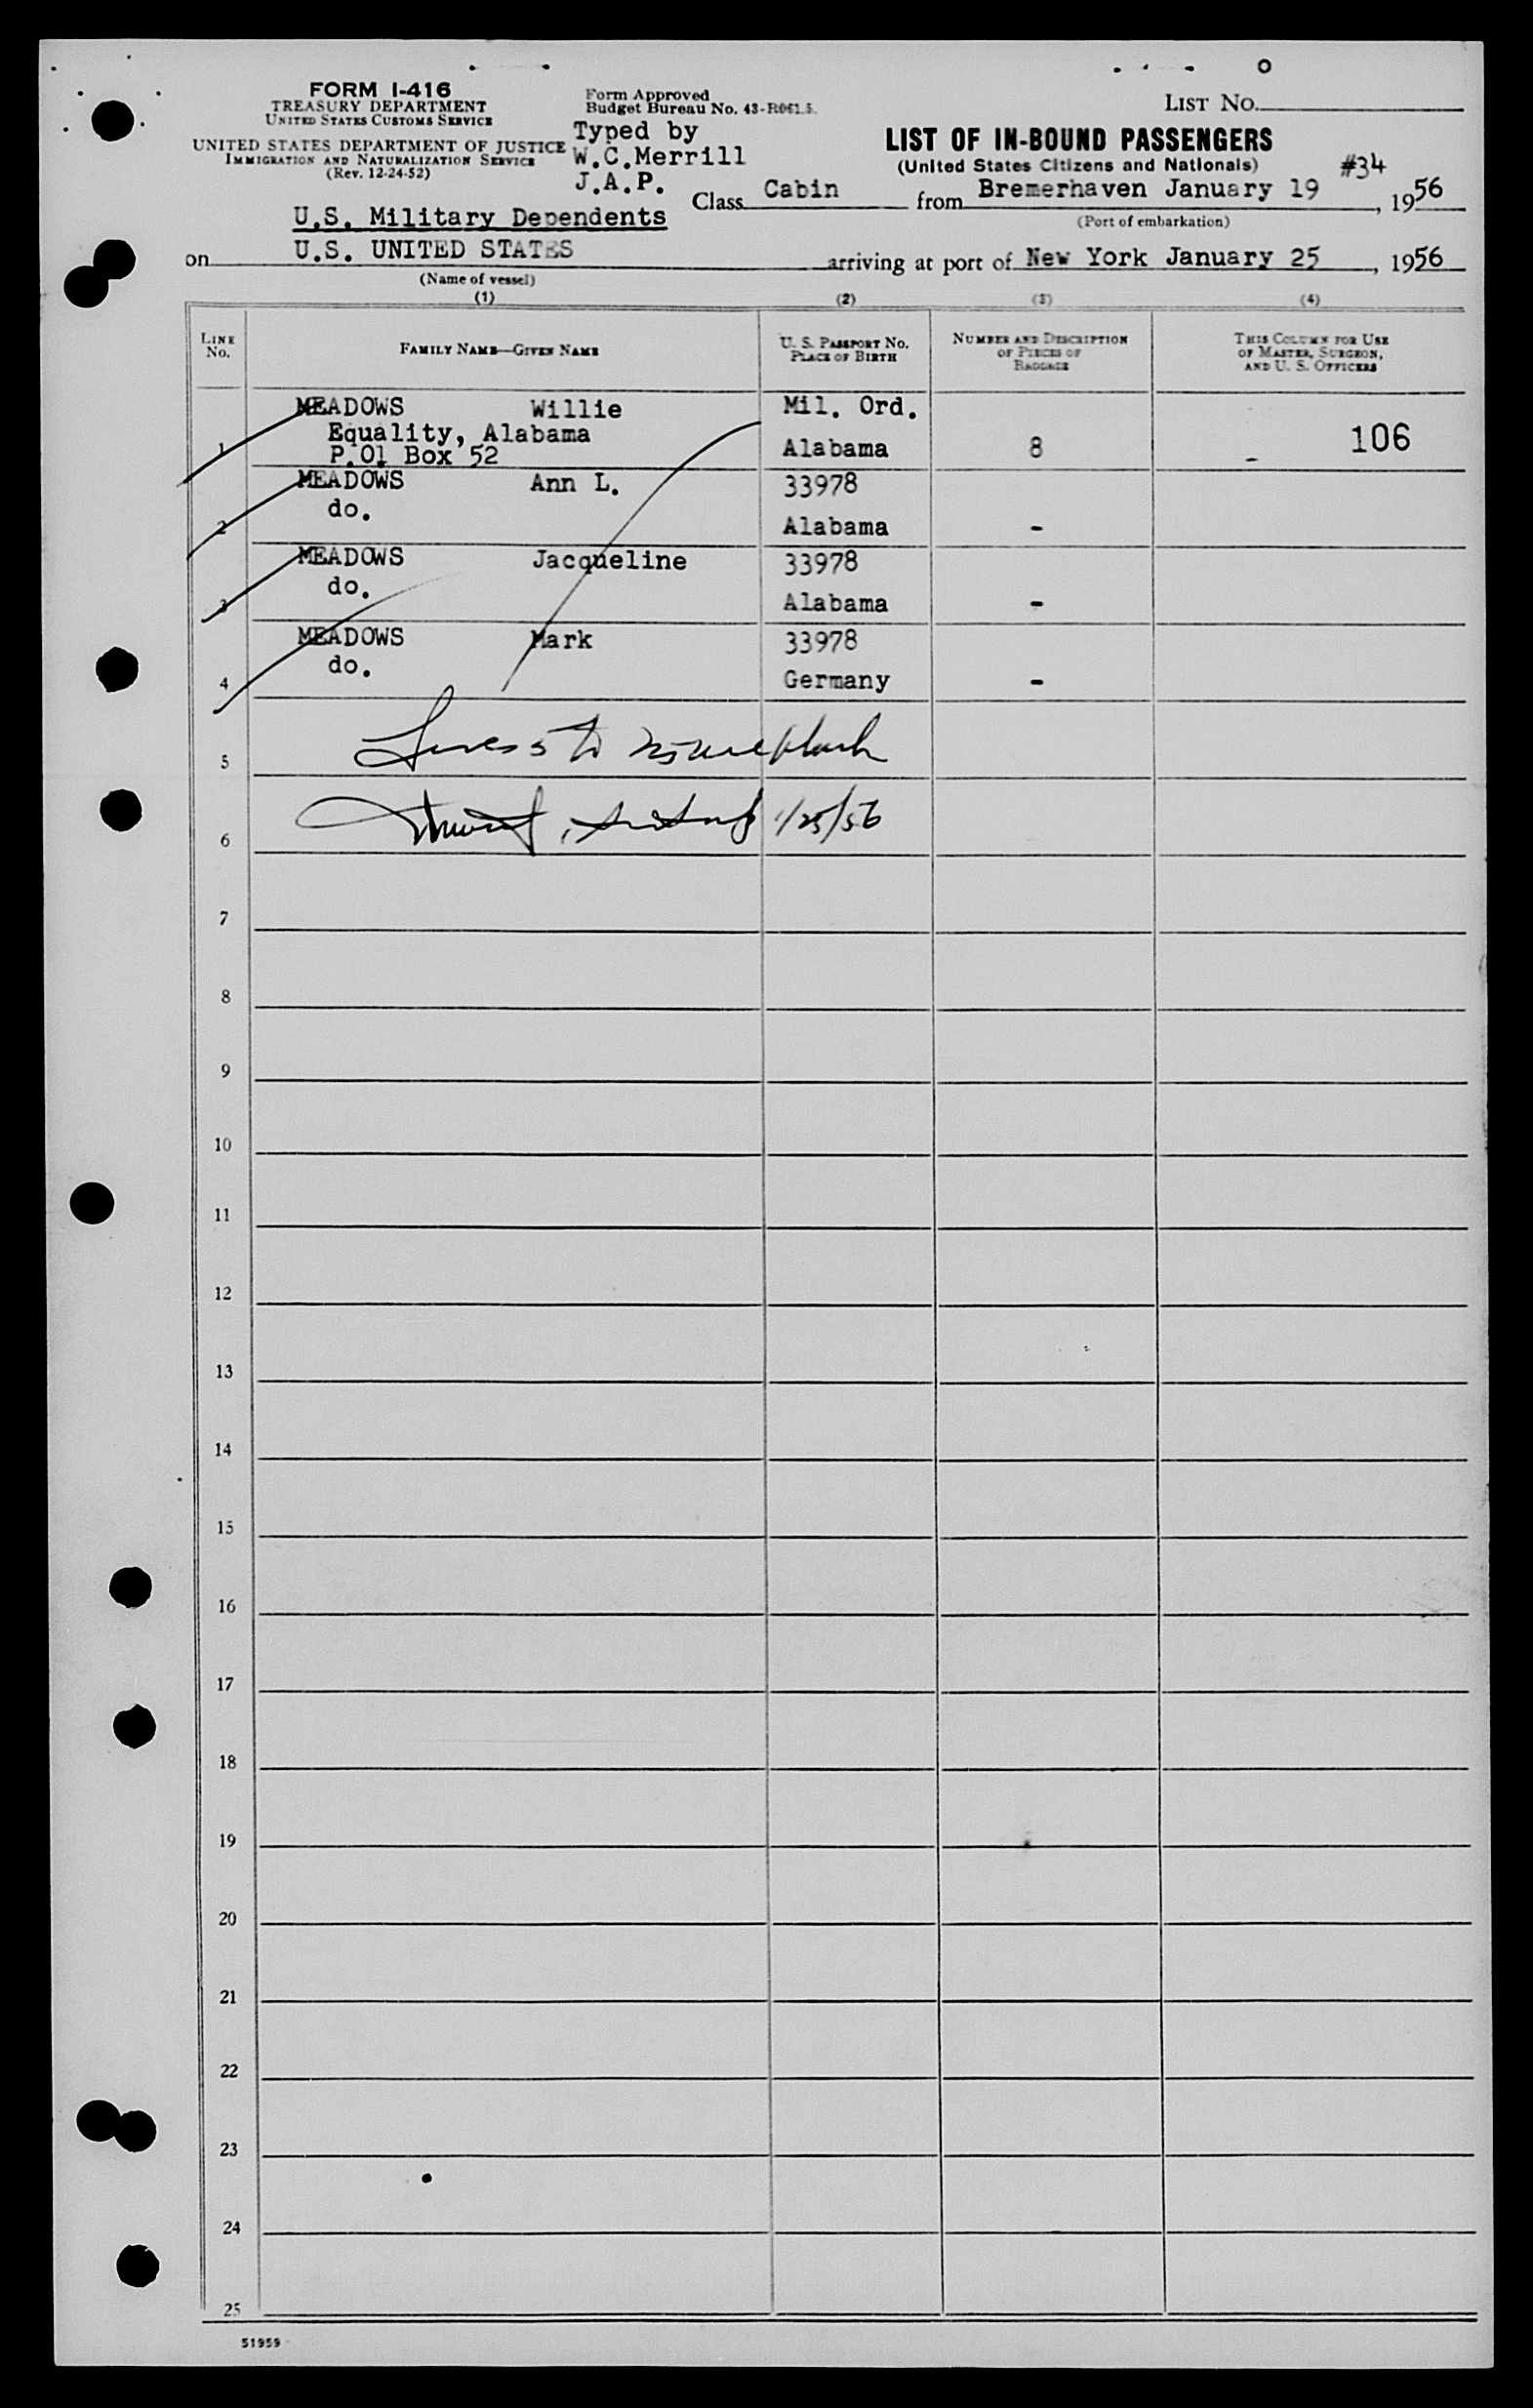 FORM I-416
TREASURY DEPARTMENT
UNITED STATES CUSTOMS SERVICE
UNITED STATES DEPARTMENT OF JUSTICE
IMMIGRATION AND NATURALIZATION SERVICE
(Rev. 12-24-52)
Form Approved
Budget Bureau No. 43-R061.5.
Typed by
W.C.Merrill
J.A.P.
LIST NO.
LIST OF IN-BOUND PASSENGERS
(United States Citizens and Nationals)
#34
Class Cabin from Bremerhaven January 19, 1956
(Port of embarkation)
U.S. Military Dependents
on U.S. UNITED STATES arriving at port of New York January 25, 1956
(Name of vessel)
(1) (2) (3) (4)
LINE NO. FAMILY NAME—GIVEN NAME U. S. PASSPORT NO. PLACE OF BIRTH NUMBER AND DESCRIPTION OF PIECES OF BAGGAGE THIS COLUMN FOR USE OF MASTER, SURGEON, AND U. S. OFFICERS
MEADOWS Willie Mil. Ord.
Equality, Alabama
1 P.O1 Box 52 Alabama 8 - 106
MEADOWS Ann L. 33978
do.
2 Alabama -
MEADOWS Jacqueline 33978
do.
3 Alabama -
MEADOWS Mark 33978
do.
4 Germany -
5 Lines 5 to 25 are blank
6 1/25/56
7
8
9
10
11
12
13
14
15
16
17
18
19
20
21
22
23
24
25
51959